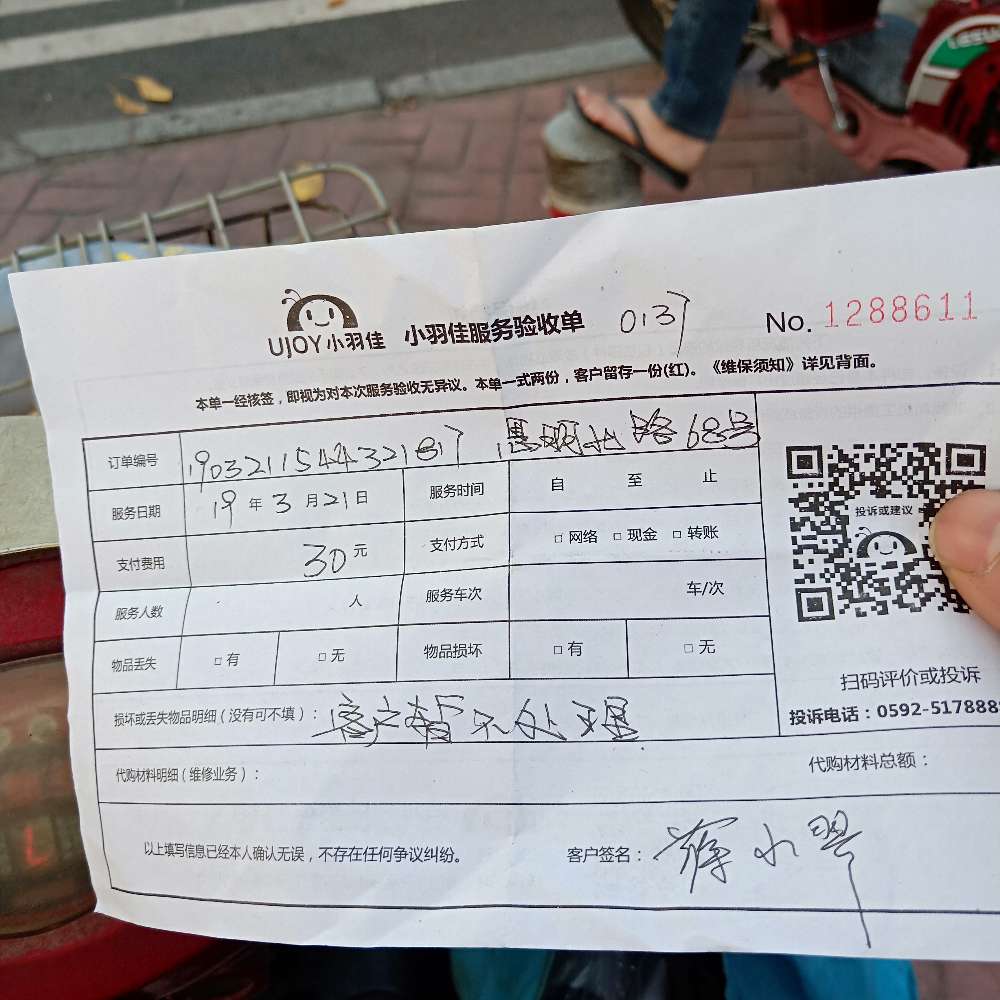 UJOY小羽佳 小羽佳服务验收单 0137 No. 1288611
本单一经核签，即视为对本次服务验收无异议。本单一式两份，客户留存一份(红)。《维保须知》详见背面。
订单编号 路68号
服务日期 19年3月21日 服务时间 自 至 止
支付费用 30元 支付方式 □ 网络 □ 现金 □ 转账
服务人数 人 服务车次 车/次
物品丢失 □ 有 □ 无 物品损坏 □ 有 □ 无
损坏或丢失物品明细（没有可不填）： 客户暂不处理
投诉或建议
扫码评价或投诉
投诉电话：0592-517888
代购材料明细（维修业务）： 代购材料总额：
以上填写信息已经本人确认无误，不存在任何争议纠纷。 客户签名：